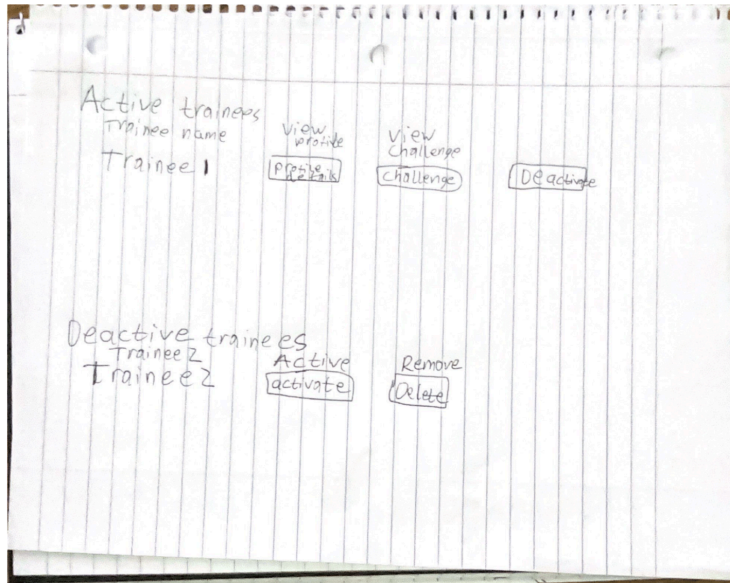 Active trainees
Trainee name
View profile
View Challenge
Trainee 1
profile details
challenge
Deactivate
Deactive trainees
Trainee 2
Active
Remove
Trainee 2
activate
Delete